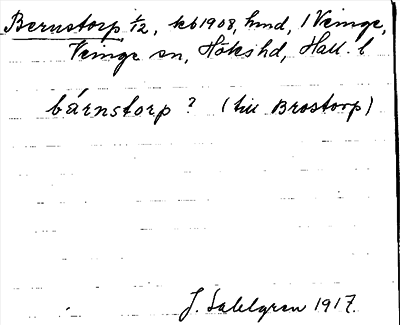 Bernstorp 1/12, kb 1908, hmd, 1 Veinge,
Veinge sn, Höks hd, Hall. l
bárnstorp ? (till Brostorp)
J. Sahlgren 1917.